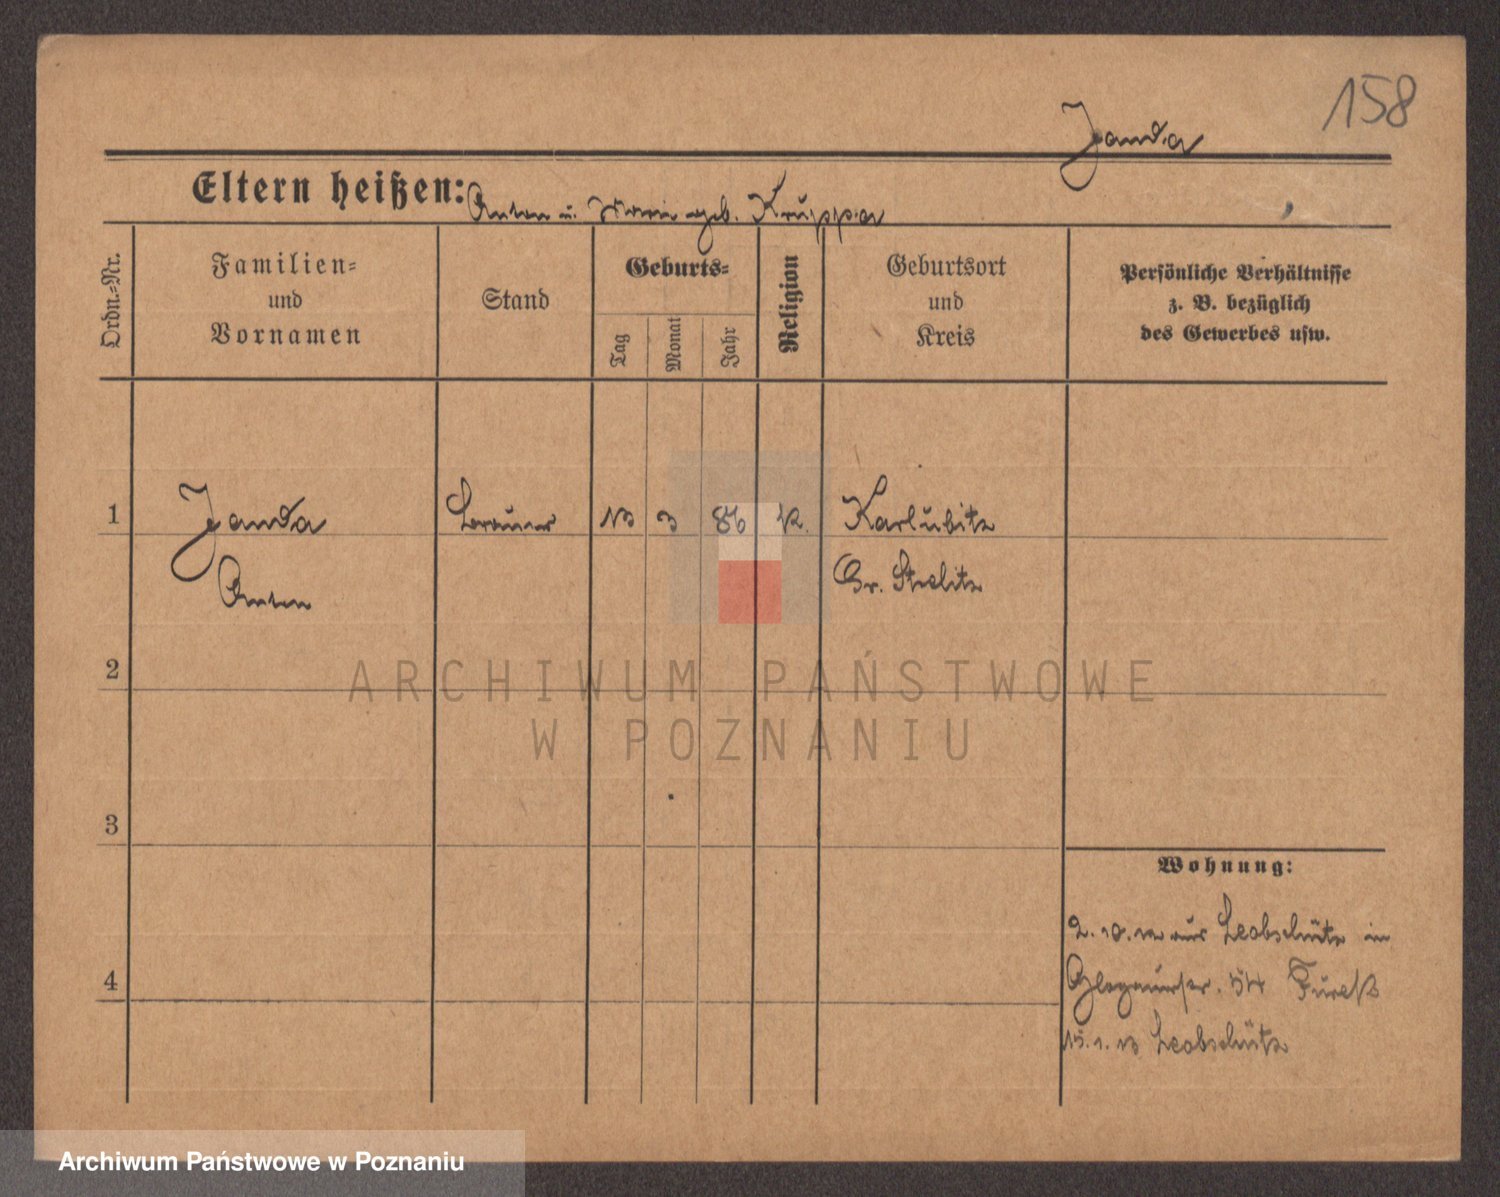 158
Janda
Eltern heißen: Anton u. Marie geb. Kruppa
Ordn.-Nr.
Familien-
und
Vornamen
Stand
Geburts-
Tag
Monat
Jahr
Religion
Geburtsort
und
Kreis
Persönliche Verhältnisse
z. B. bezüglich
des Gewerbes usw.
1 Janda Brauer 13 3 86 k. Karlubitz
Anton Gr. Strelitz
2
ARCHIWUM PAŃSTWOWE
W POZNANIU
3
Wohnung:
2. 10. 12 aus Leobschütz in
Glogauerstr. 54
4
15. 1. 13 Leobschütz
Archiwum Państwowe w Poznaniu